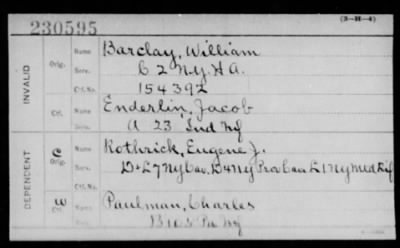 230595
(3-H-4)
INVALID
Orig. Name Barclay, William
Serv. C 2 N.Y. H A.
Ctf. No. 154392
Ctf. Name Enderlin, Jacob
Serv. A 23 Ind Inf
DEPENDENT
C Orig. Name Rothrick, Eugene J.
Serv. D+L 7 NY Cav. D4 NY Pro Cav L 1 NY Mtd Rif
Ctf. No.
W Ctf. Name Paulman, Charles
B 105 Pa Inf